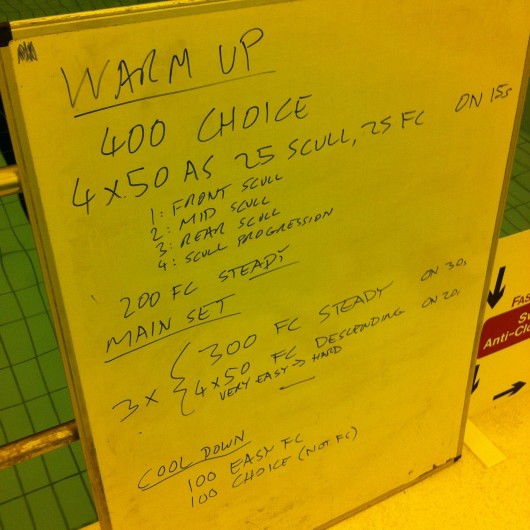 WARM UP
400 CHOICE
4x50 AS 25 SCULL, 25 FC ON 15s
1: FRONT SCULL
2: MID SCULL
3: REAR SCULL
4: SCULL PROGRESSION
200 FC STEADY
MAIN SET
3x { 300 FC STEADY ON 30s
4x50 FC DESCENDING ON 20s
VERY EASY → HARD
COOL DOWN
100 EASY FC
100 CHOICE (NOT FC)
FAS
Anti-Clo